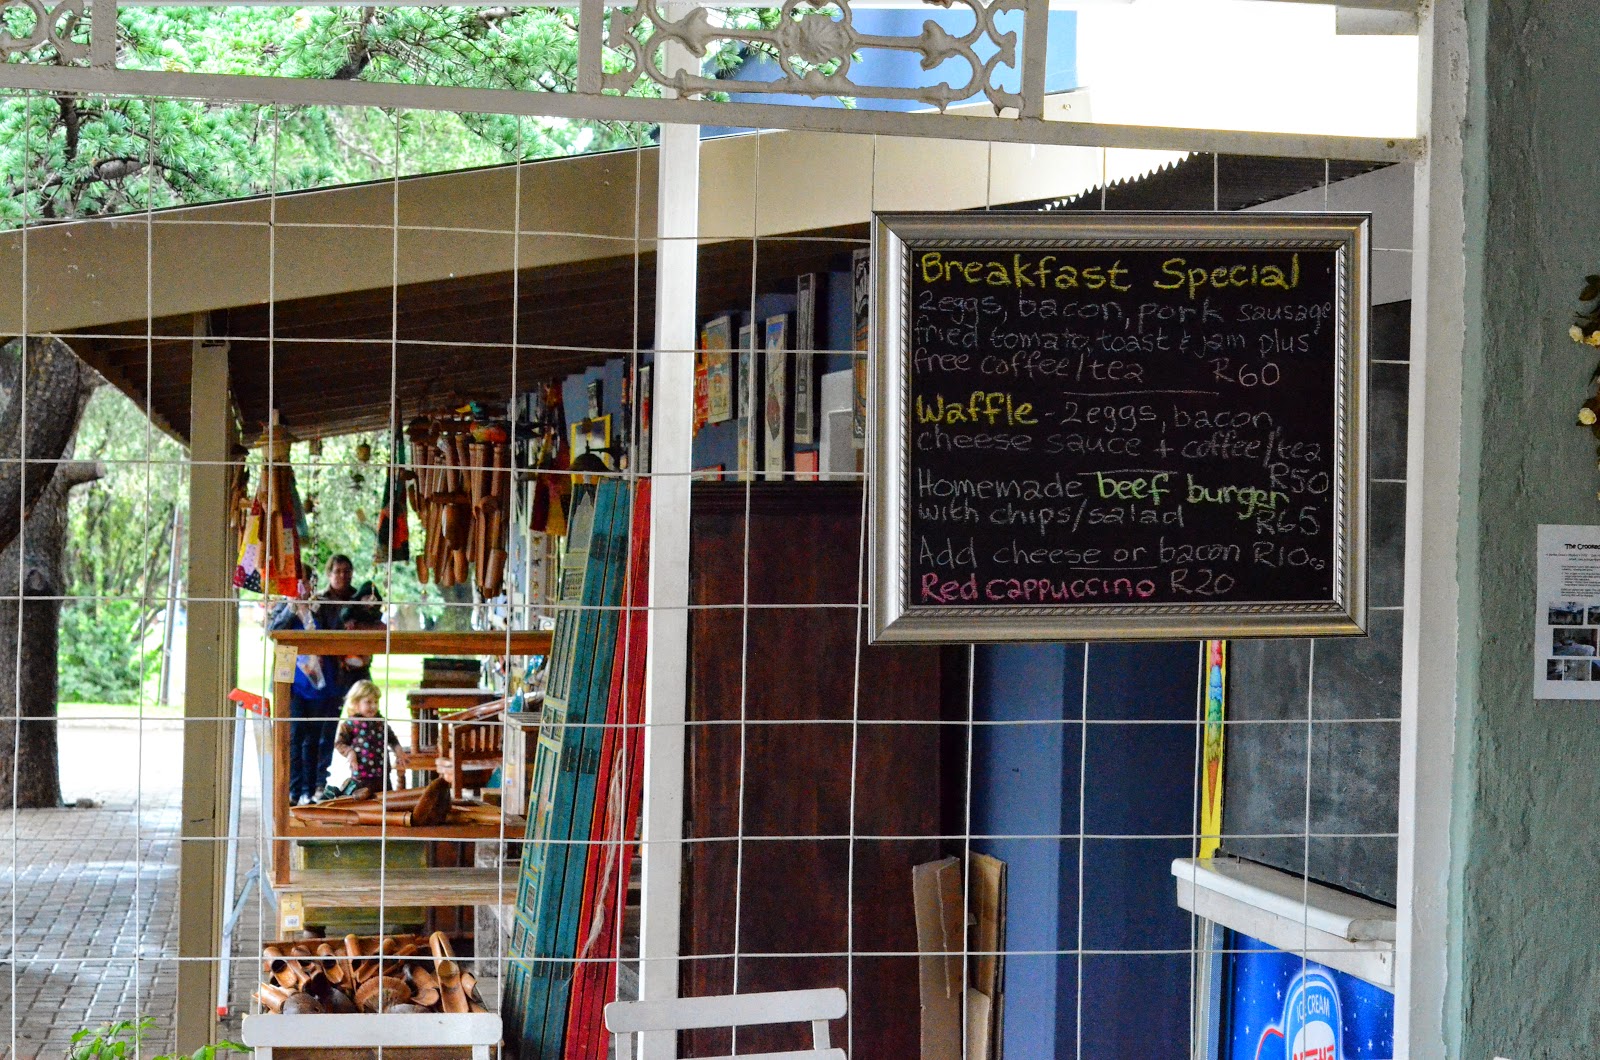 Breakfast Special
2eggs, bacon, pork sausage
fried tomato, toast & jam plus
free coffee/tea R60
Waffle - 2eggs, bacon,
cheese sauce + coffee/tea
R50
Homemade beef burger
with chips/salad R65
Add cheese or bacon R10ea
Red cappuccino R20
The Crooked
ICE CREAM